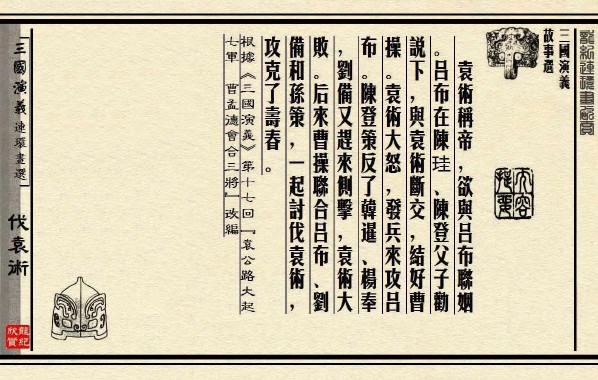 龍紀連環畫欣賞
三國演義
故事選
内容
提要
袁術稱帝，欲與吕布聯姻
。吕布在陳珪、陳登父子勸
說下，與袁術斷交，結好曹
操。袁術大怒，發兵來攻吕
布。陳登策反了韓暹、楊奉
，劉備又趕來側擊，袁術大
敗。后來曹操聯合吕布、劉
備和孫策，一起討伐袁術，
攻克了壽春。
根據《三國演義》第十七回『袁公路大起
七軍　曹孟德會合三將』改編
三國演義連環畫選
伐袁術
龍紀
欣賞